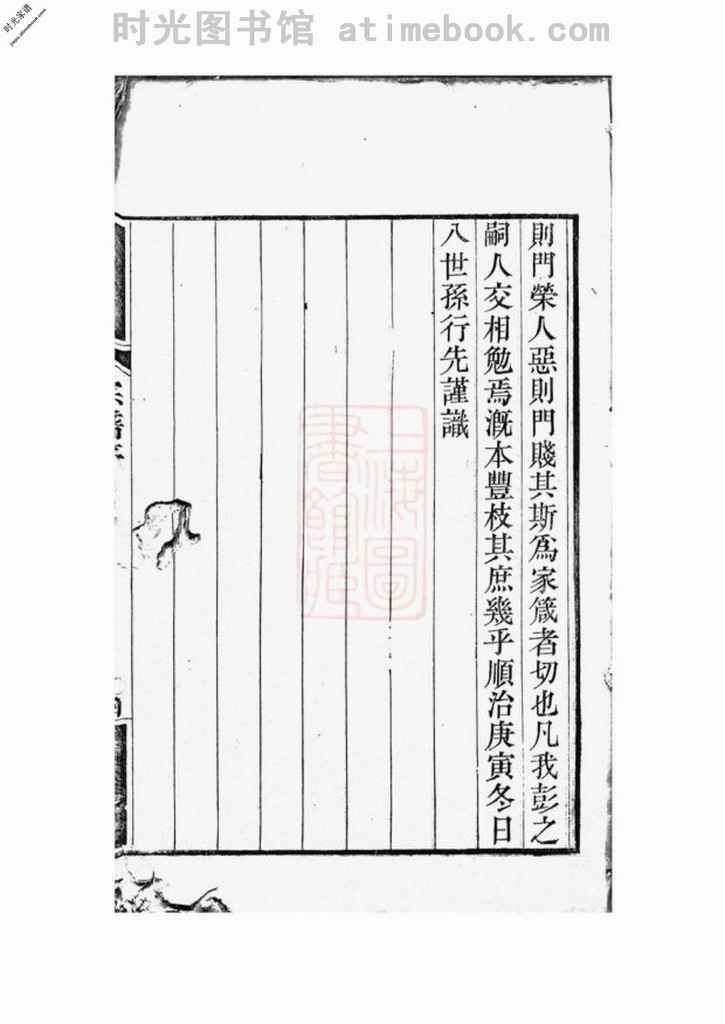 时光图书馆 atimebook.com
时光家谱
則門榮人惡則門賤其斯為家箴者切也凡我彭之
嗣人交相勉焉漑本豐枝其庶幾乎順治庚寅冬日
八世孫行先謹識
上海圖
書館藏